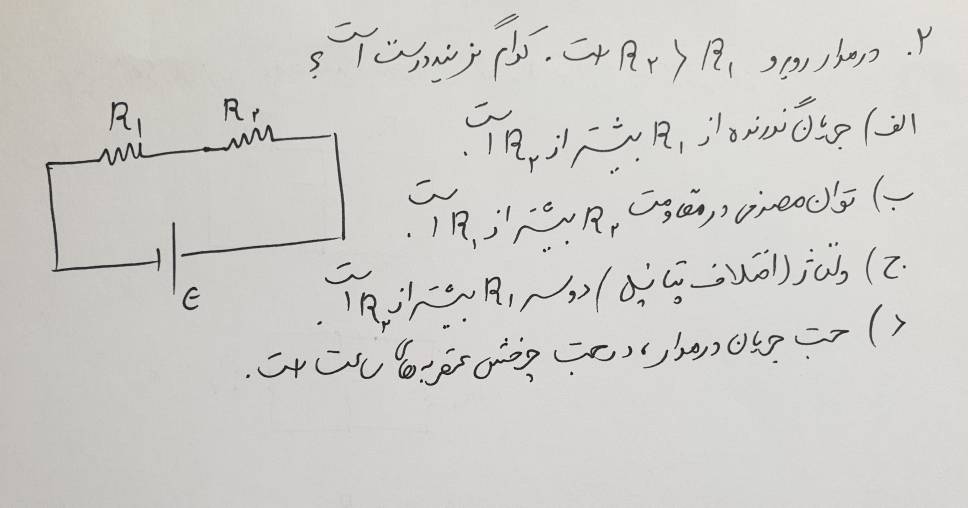 ۲. در مدار روبرو R۲ > R۱ است. کدام گزینه درست است؟
الف) جریان گذرنده از R۱ بیشتر از R۲ است.
ب) توان مصرفی در مقاومت R۲ بیشتر از R۱ است.
ج) ولتاژ (اختلاف پتانسیل) دو سر R۱ بیشتر از R۲ است.
د) جهت جریان در مدار، در جهت چرخش عقربه‌های ساعت است.
R۱
R۲
ε